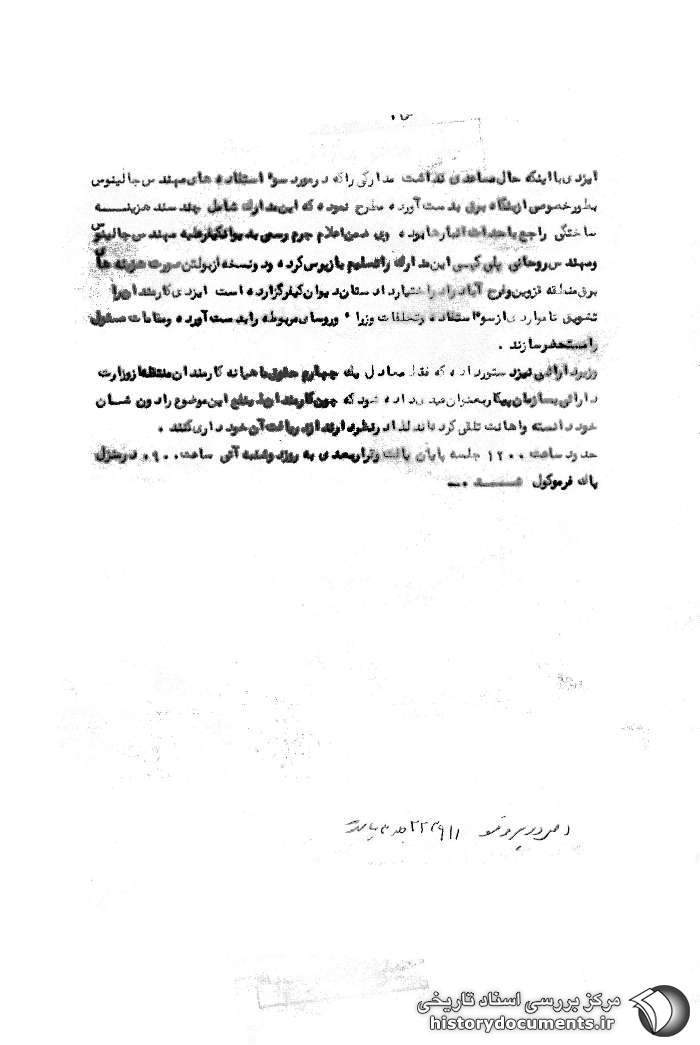 ایزدی با اینکه حال مساعدی نداشت مدارکی را که در مورد سوء استفاده های مهندس جالینوس
بطور خصوصی از بنگاه برق بدست آورده مطرح نمود که این مدارک شامل چند سند هزینه
ساختگی راجع باحداث انبارها بوده وی ضمن اعلام جرم رسمی بدیوانکیفر علیه مهندس جالینوس
و مهندس روحانی این مدارک را تسلیم بازپرس کرده و دو نسخه از بولتن صورت هزینه های
برق منطقه قزوین و فرح آباد را در اختیار دادستان دیوان کیفر گزارده است ایزدی کارمندان را
تشویق تا مواردی از سوء استفاده و تخلفات وزراء و روسای مربوطه را بدست آورده و مقامات مسئول
را مستحضر سازند .
وزیر دارائی نیز دستور داده که فقط معادل یک چهارم حقوق ماهیانه کارمندان منتظره از وزارت
دارائی بسازمان پیکار بعنوان عیدی داده شود که چون کارمندان این موضوع را دون شان
خود دانسته و اهانت تلقی کرده اند لذا در نظر دارند از دریافت آن خودداری کنند .
حدود ساعت ۱۲۰۰ جلسه پایان یافت و قرار بعدی به روز دوشنبه آتی ساعت ۰۹۰۰ در منزل
پاک فر موکول شد .ـ
مرکز بررسی اسناد تاریخی
historydocuments.ir